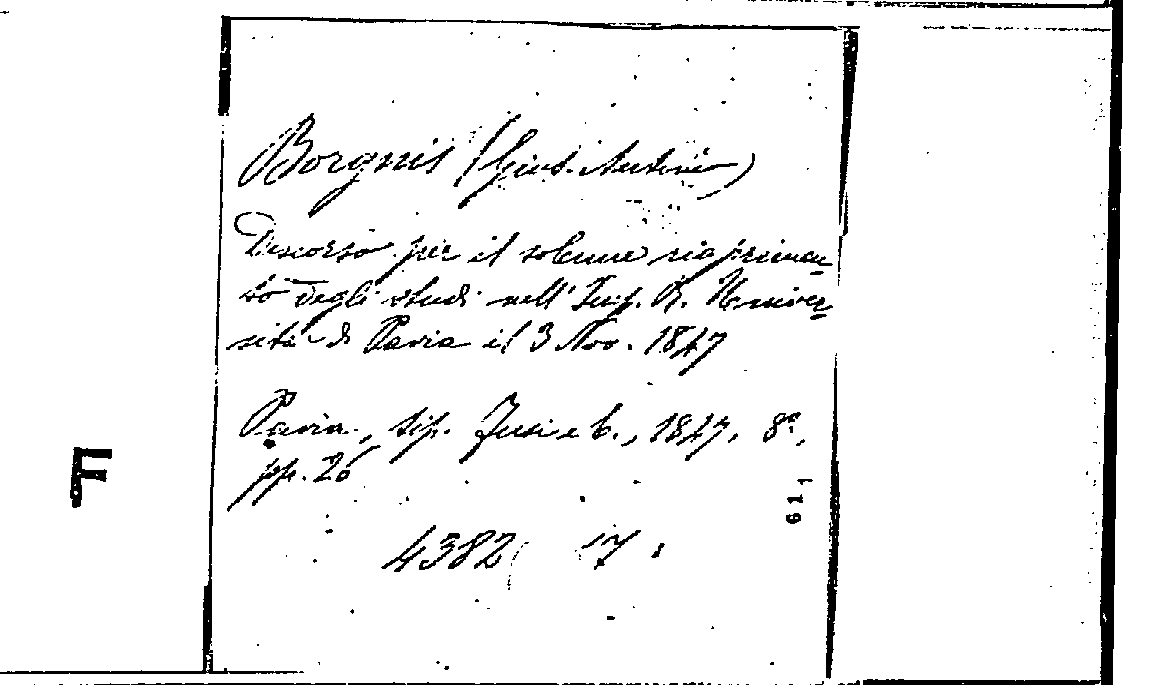 Borgnis (Gius. Antonio)
Discorso per il solenne riaprimen=
to degli studi nell' Imp. R. Univer=
sità di Pavia il 3 Nov. 1847
Pavia, tip. Fusi e C., 1847, 8º,
pp. 26
4382 17
F
611